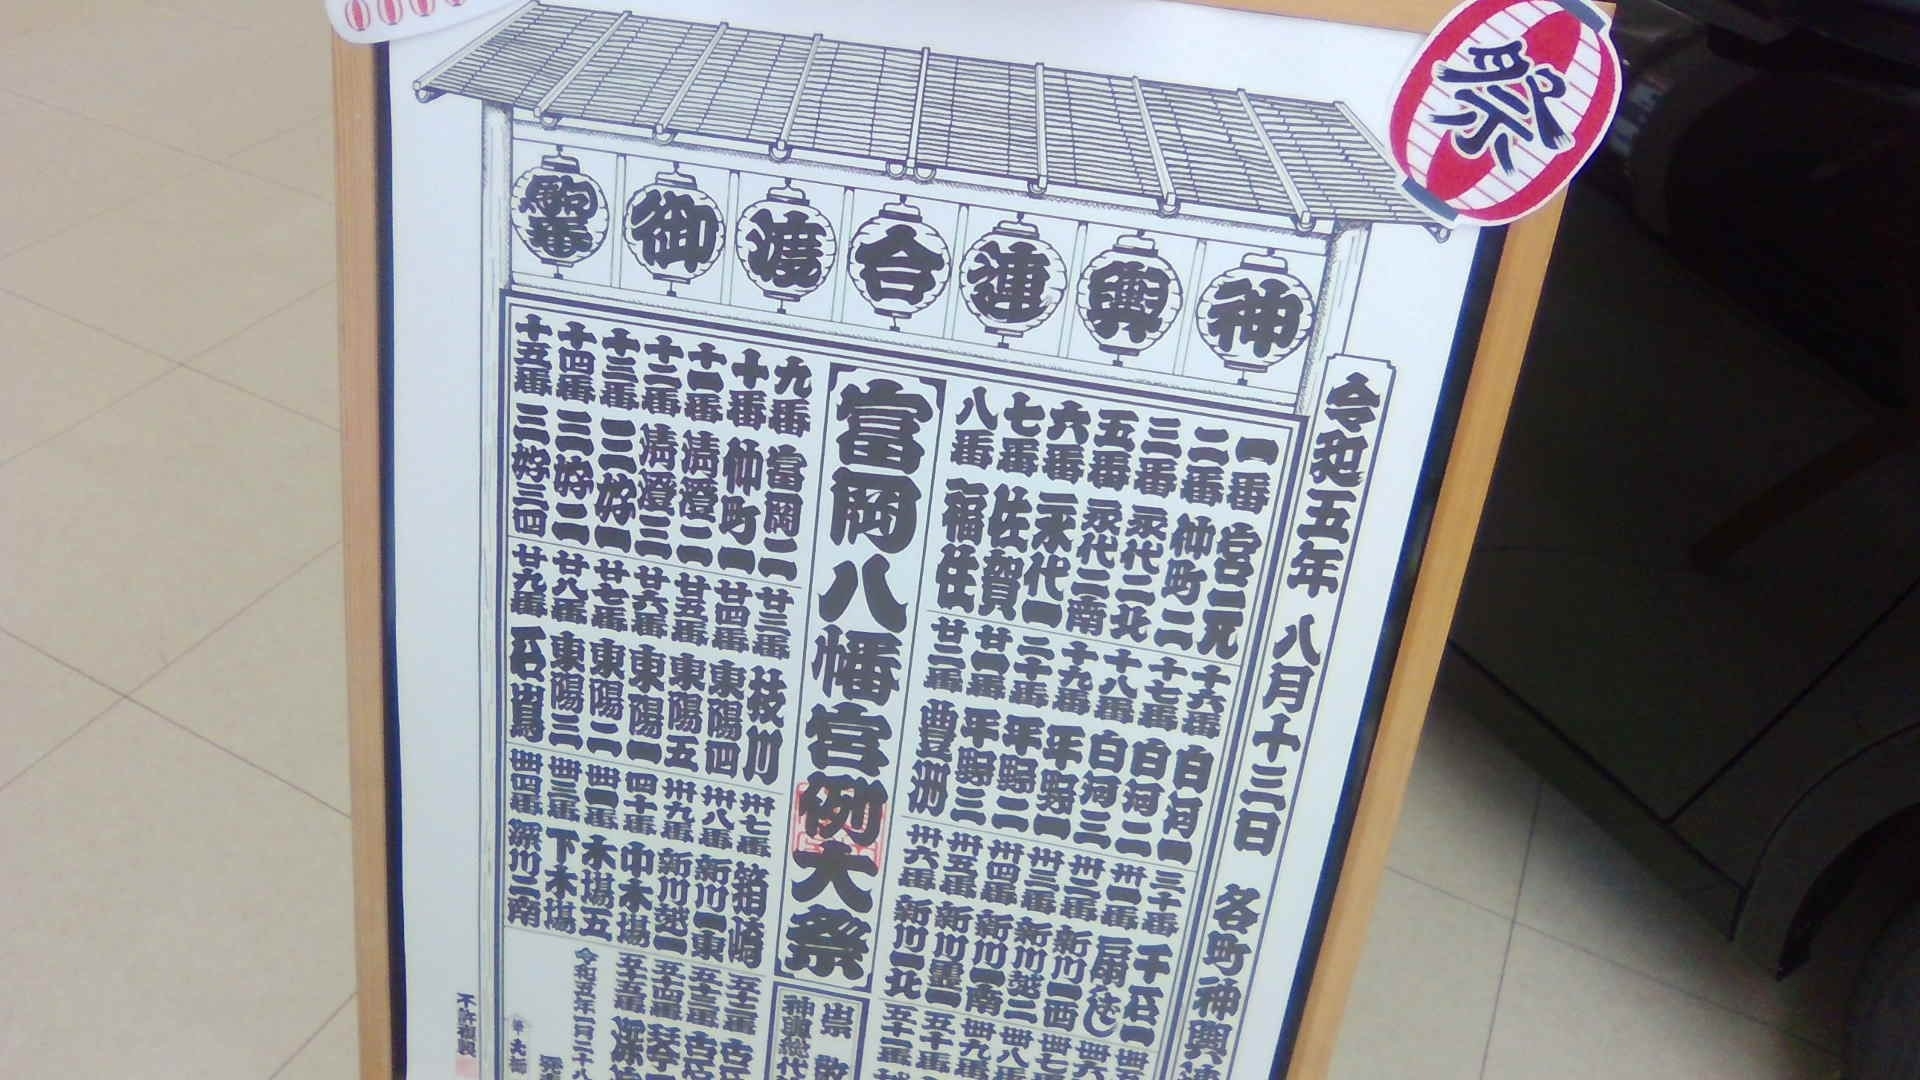 祭
神輿連合渡御駒番
令和五年 八月十三日 各町神輿連
一番 宮元
二番 仲町二
三番 永代二北
五番 永代二南
六番 永代一
七番 佐賀
八番 福住
富岡八幡宮例大祭
九番 富岡二
十番 仲町一
十一番 清澄二
十二番 清澄三
十三番 三好一
十四番 三好二
十五番 三好三四
十六番 白河一
十七番 白河二
十八番 白河三
十九番 平野一
二十番 平野二
廿一番 平野三
廿二番 豊洲
廿三番 枝川
廿四番 東陽四
廿五番 東陽五
廿六番 東陽一
廿七番 東陽二
廿八番 東陽三
廿九番 石島
三十番 千石一
卅一番 扇はし
卅二番 新川一西
卅三番 新川越二
卅四番 新川一南
卅五番 新川霊一
卅六番 新川一北
卅七番 箱崎
卅八番 新川一東
卅九番 新川越一
四十番 中木場
卌一番 木場五
卌三番 下木場
卌四番 深川二南
卌六番
卌七番
卌八番
卌九番
五十番
五十一番
崇敬
神輿総代
五十二番
五十三番
五十四番
五十五番 深
不許複製